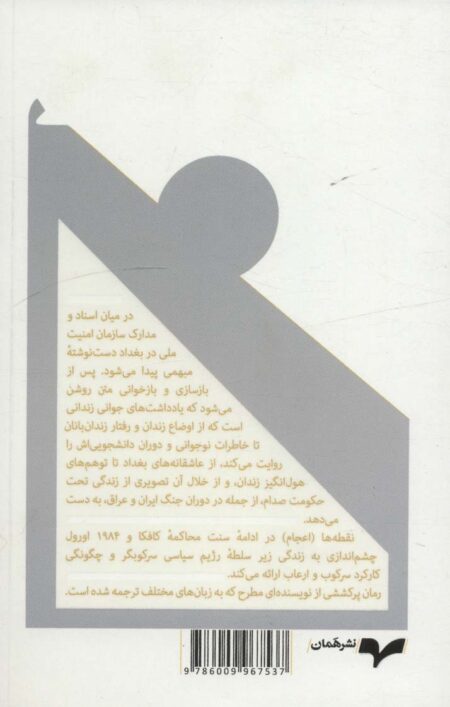 در میان اسناد و
مدارک سازمان امنیت
ملی در بغداد دست‌نوشتهٔ
مبهمی پیدا می‌شود. پس از
بازسازی و بازخوانی متن روشن
می‌شود که یادداشت‌های جوانی زندانی
است که از اوضاع زندان و رفتار زندان‌بانان
تا خاطرات نوجوانی و دوران دانشجویی‌اش را
روایت می‌کند، از عاشقانه‌های بغداد تا توهم‌های
هول‌انگیز زندان، و از خلال آن تصویری از زندگی تحت
حکومت صدام، از جمله در دوران جنگ ایران و عراق، به دست
می‌دهد.
نقطه‌ها (اعجام) در ادامهٔ سنت محاکمهٔ کافکا و ۱۹۸۴ اورول
چشم‌اندازی به زندگی زیر سلطهٔ رژیم سیاسی سرکوبگر و چگونگی
کارکرد سرکوب و ارعاب ارائه می‌کند.
رمان پرکششی از نویسنده‌ای مطرح که به زبان‌های مختلف ترجمه شده است.
نشر همان
9 786009 967537